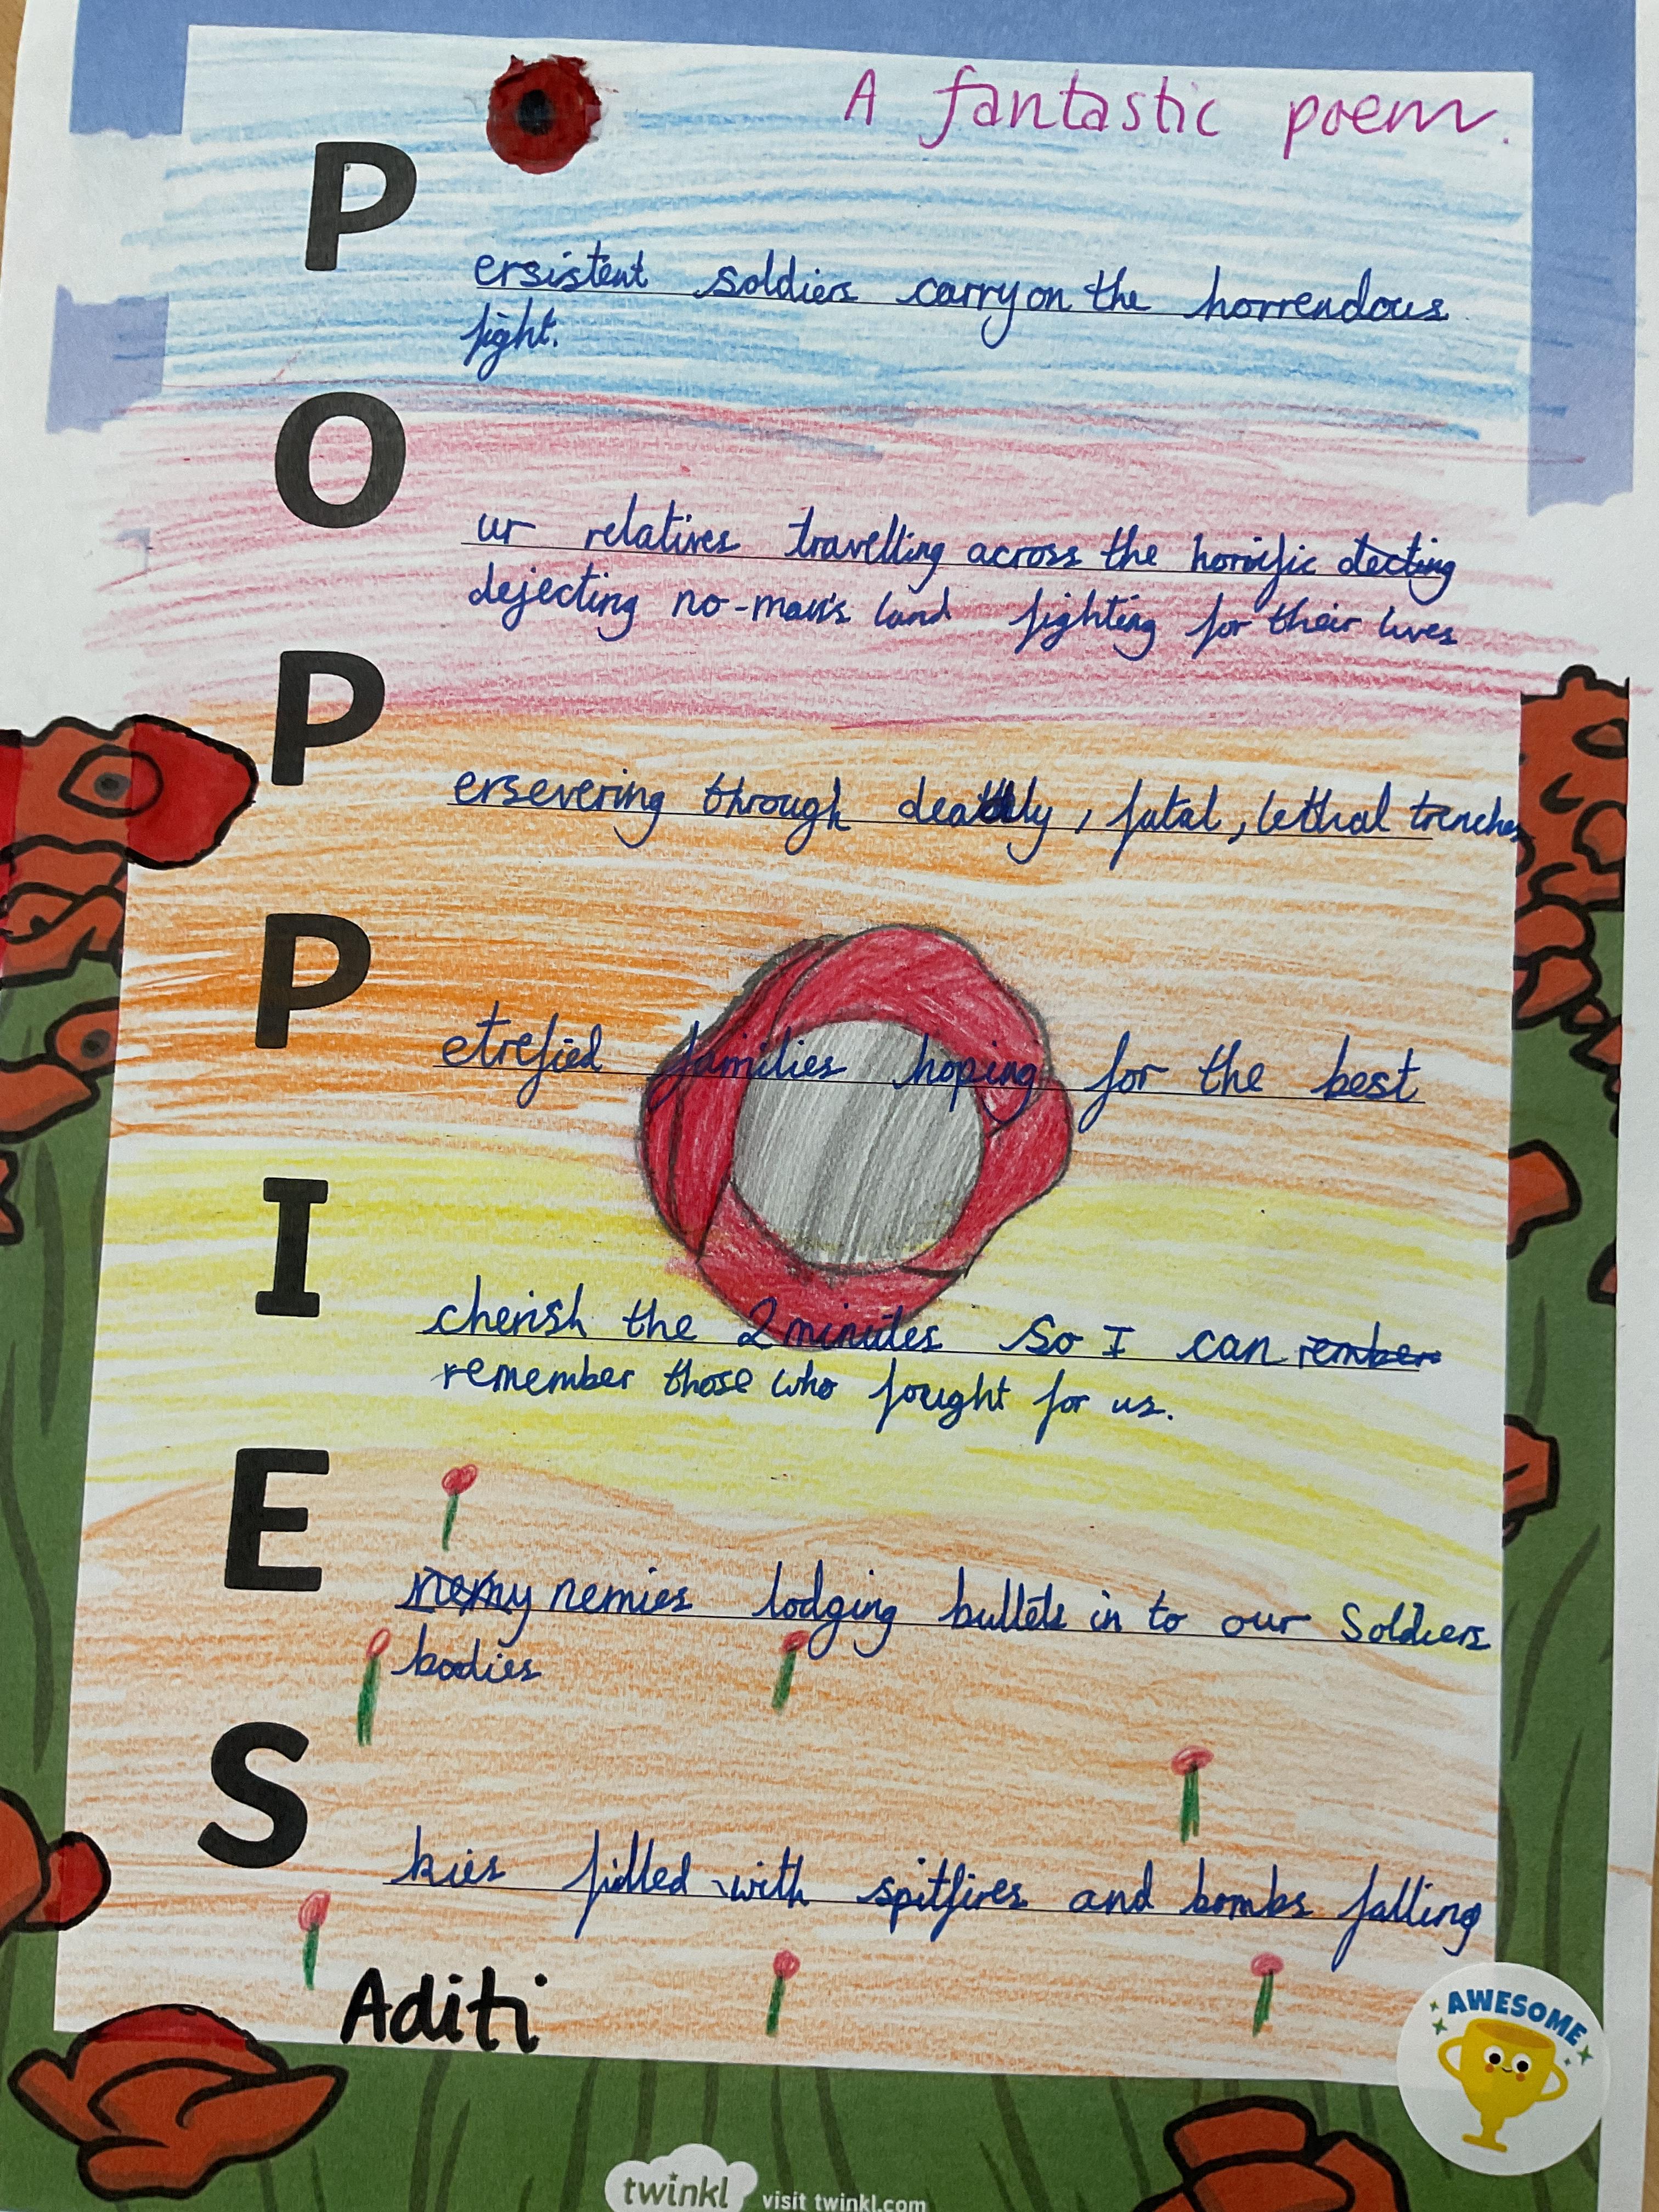 A fantastic poem.
P
ersistent soldiers carry on the horrendous
fight.
O
ur relatives travelling across the horrific
dejecting no-man's land fighting for their lives
P
ersevering through deathly, fatal, lethal trenches
P
etrefied families hoping for the best
I
cherish the 2 minutes so I can rember
remember those who fought for us.
E
nemy nemies lodging bullets in to our Soldiers
bodies
S
kies filled with spitfires and bombs falling
Aditi
AWESOME
twinkl visit twinkl.com